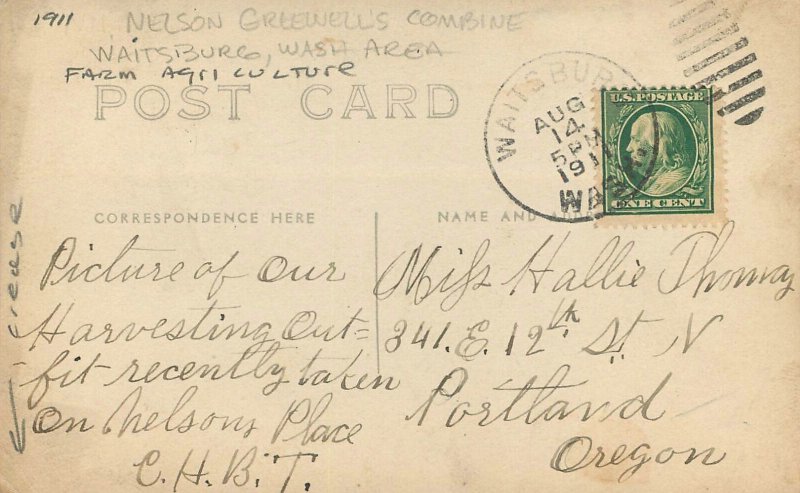 1911
NELSON GREEWELL'S COMBINE
WAITSBURG, WASH AREA
FARM AGRICULTURE
POST CARD
WAITSBURG
AUG
14
5 PM
1911
WASH.
U.S. POSTAGE
ONE CENT
CORRESPONDENCE HERE
crease
Picture of our
Harvesting Out=
fit recently taken
on Nelsons Place
C.H.B.T.
NAME AND
Miss Hallie Thomas
341. E. 12th St. N
Portland
Oregon